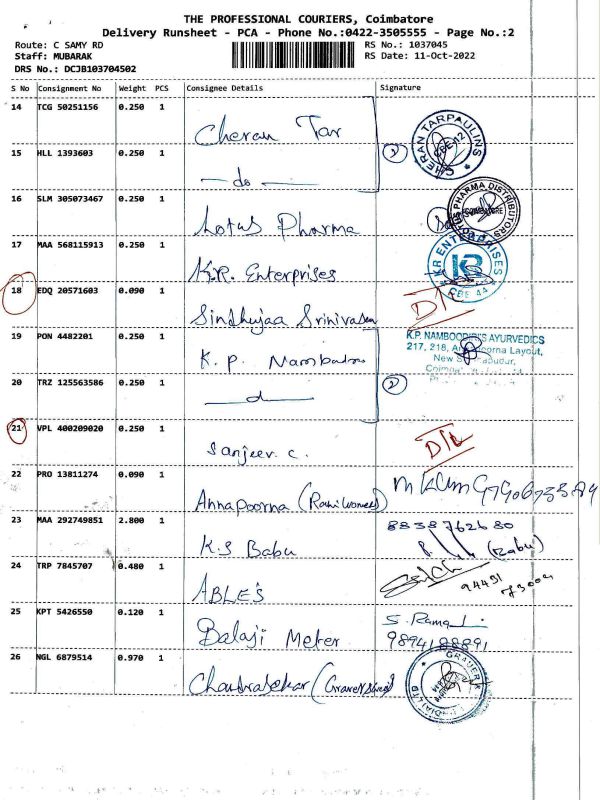 THE PROFESSIONAL COURIERS, Coimbatore
Delivery Runsheet - PCA - Phone No.:0422-3505555 - Page No.:2
Route: C SAMY RD RS No.: 1037045
Staff: MUBARAK RS Date: 11-Oct-2022
DRS No.: DCJB103704502
S No Consignment No Weight PCS Consignee Details Signature
14 TCG 50251156 0.250 1 Cheran Tar CHERAN TARPAULINS CBE-12
15 HLL 1393603 0.250 1 do 2
16 SLM 305073467 0.250 1 Lotus Pharma LOTUS PHARMA DISTRIBUTORS COIMBATORE
17 MAA 568115913 0.250 1 K.R. Enterprises KR ENTERPRISES CBE 44
18 EDQ 20571603 0.090 1 Sindhujaa Srinivasan D/L
19 PON 4482201 0.250 1 K. P. Namboo K.P. NAMBOODIRI'S AYURVEDICS
217, 218, Layout,
New
20 TRZ 125563586 0.250 1 d 2
21 VPL 400209020 0.250 1 Sanjeev. C. D/L
22 PRO 13811274 0.090 1 Annapoorna
23 MAA 292749851 2.800 1 K.S Babu 8838762680
(Babu)
24 TRP 7845707 0.480 1 ABLE'S 94431
73004
25 KPT 5426550 0.120 1 Balaji Meter S. Rama
9894188891
26 NGL 6879514 0.970 1 Chandrasekar